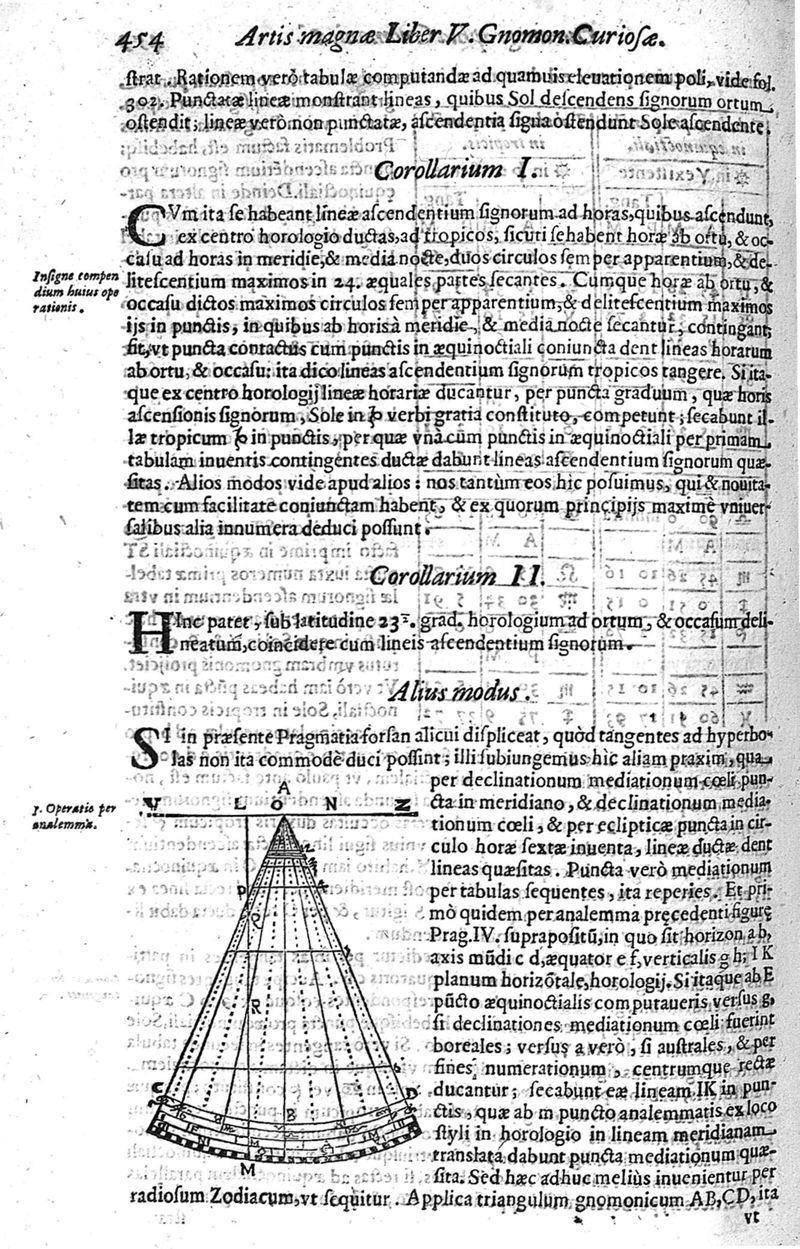 454 Artis magnæ Liber V. Gnomon. Curiosæ.
strat. Rationem verò tabulæ computandæ ad quamuis eleuationem poli, vide fol.
302. Punctatæ lineæ monstrant lineas, quibus Sol descendens signorum ortum
ostendit; lineæ verò non punctatæ, ascendentia signa ostendunt Sole ascendente.
Corollarium I.
CVm ita se habeant lineæ ascendentium signorum ad horas, quibus ascendunt,
ex centro horologio ductas, ad tropicos, sicuti se habent horæ ab ortu, & oc-
casu ad horas in meridie, & media nocte, duos circulos semper apparentium, & de-
litescentium maximos in 24. æquales partes secantes. Cumque horæ ab ortu, &
occasu dictos maximos circulos semper apparentium, & delitescentium maximos
ijs in punctis, in quibus ab horis à meridie, & media nocte secantur, contingant;
fit, vt puncta contactus cum punctis in æquinoctiali coniuncta dent lineas horarum
ab ortu, & occasu: ita dico lineas ascendentium signorum tropicos tangere. Si ita-
que ex centro horologij lineæ horariæ ducantur, per puncta graduum, quæ horis
ascensionis signorum, Sole in ♑ verbi gratia constituto, competunt; secabunt il-
læ tropicum ♑ in punctis, per quæ vnà cum punctis in æquinoctiali per primam
tabulam inuentis contingentes ductæ dabunt lineas ascendentium signorum quæ-
sitas. Alios modos vide apud alios: nos tantùm eos hic posuimus, qui & nouita-
tem cum facilitate coniunctam habent, & ex quorum principijs maximè vniuer-
salibus alia innumera deduci possunt.
Insigne compen
dium huius ope
rationis.
Corollarium II.
HInc patet, sub latitudine 23½. grad. horologium ad ortum, & occasum deli-
neatum, coincidere cum lineis ascendentium signorum.
Alius modus.
SI in præsente Pragmatia forsan alicui displiceat, quòd tangentes ad hyperbo-
las non ita commodè duci possint; illi subiungemus hìc aliam praxim, qua
per declinationum mediationum cœli pun-
cta in meridiano, & declinationum media-
tionum cœli, & per eclipticæ puncta in cir-
culo horæ sextæ inuenta, lineæ ductæ dent
lineas quæsitas. Puncta verò mediationum
per tabulas sequentes, ita reperies. Et pri-
mò quidem per analemma præcedenti figuræ
Prag. IV. suprapositũ, in quo sit horizon a b,
axis mũdi c d, æquator e f, verticalis g h; I K
planum horizõtale, horologij. Si itaque ab E
pũcto æquinoctialis computaueris versus g,
si declinationes mediationum cœli fuerint
boreales; versus a verò, si australes, & per
fines numerationum, centrumque rectæ
ducantur; secabunt eæ lineam IK in pun-
ctis, quæ ab m puncto analemmatis ex loco
styli in horologio in lineam meridianam
translata dabunt puncta mediationum quæ-
sita. Sed hæc adhuc meliùs inuenientur per
radiosum Zodiacum, vt sequitur. Applica triangulum gnomonicum AB, CD, ita
vt
1. Operatio per
analemma.
A
V L O N Z
P
R
R
C D
B
F
M
M